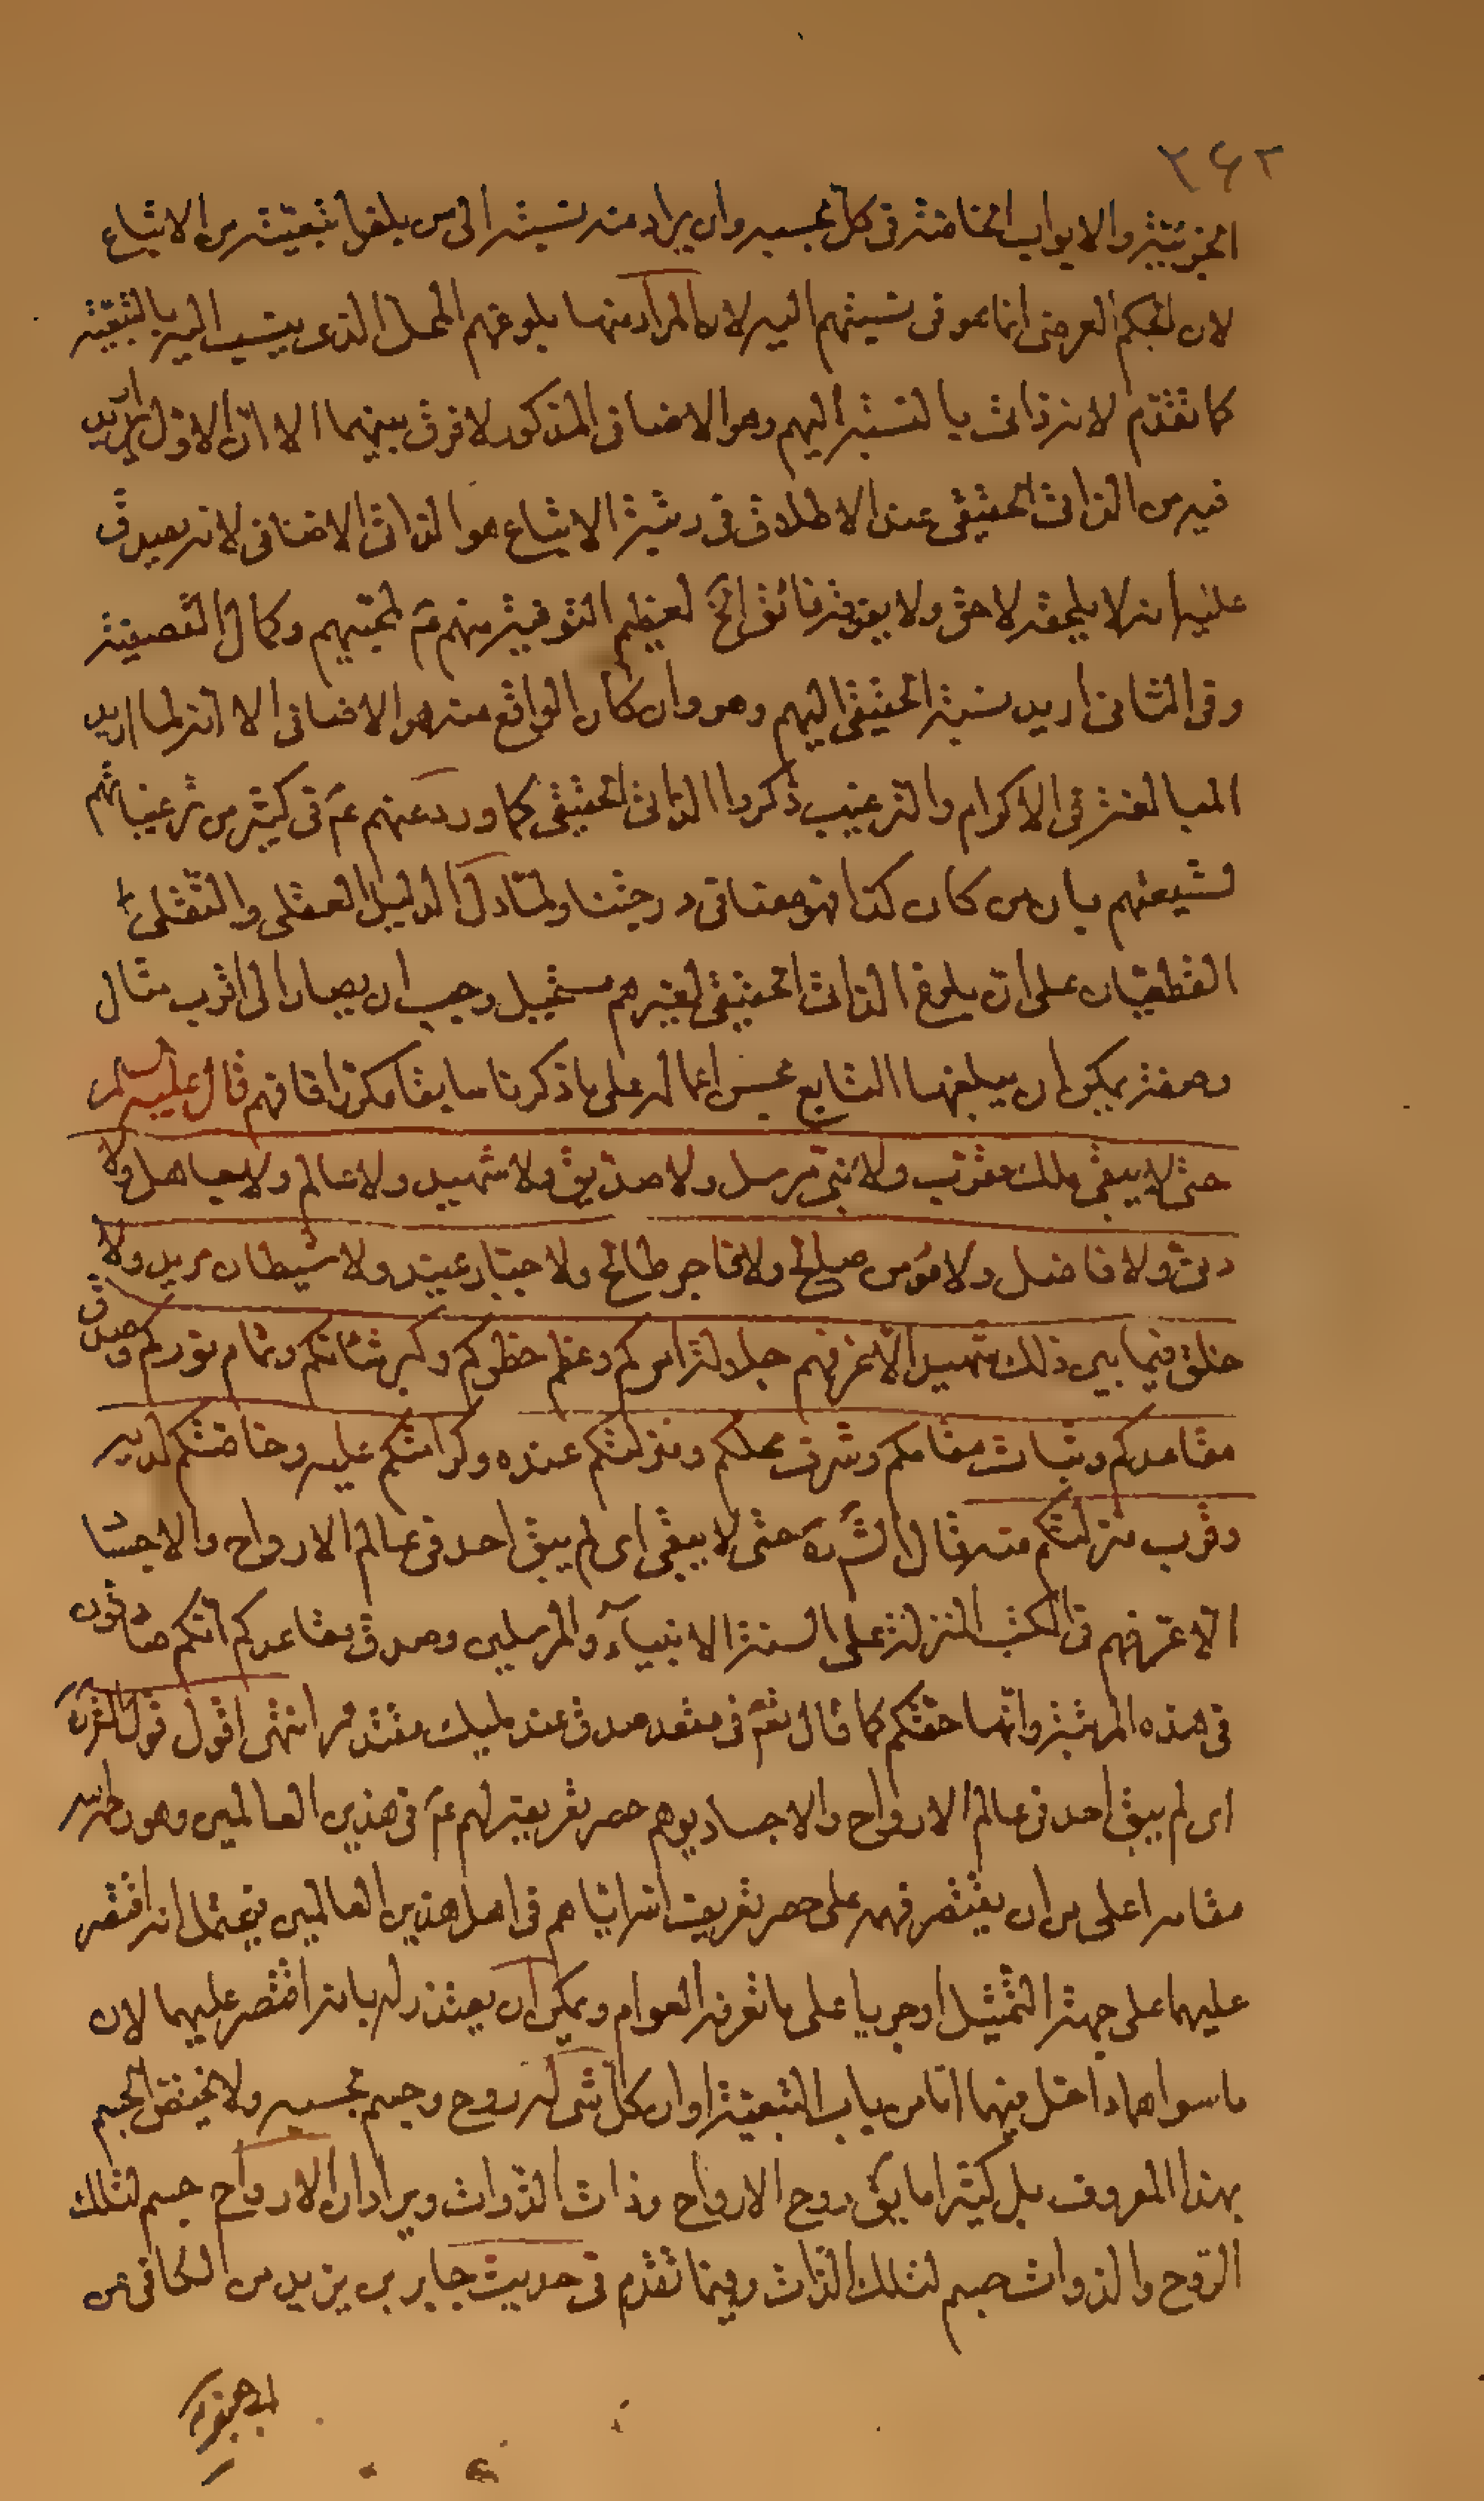 ٣٤٢
الجزئية والابواب الخاصة في كل بحسبه وان يراد منه نسبته الى من بلغها بتبعيته من الاتباع
لان لحكم العرضى انما هو في نسبتهم اليه لان المراد منها بلوغهم المحل الذى ينسب اليه بالتبعية
كما تقدم لانه ذاتى بالنسبة اليهم وهو الاضافى المذكور لا فرق بينهما الا ان الاول اريد
فيه من الذاتى الحقيقى عند الاطلاق في رتبة الاتباع هو الذاتى الاضافى لانه يصدق
عليه انه لا يلحقه لاحق ولا يفوقه فائق الخ لعظيم التوفية منهم ع لمحبيهم وكمال التصفية
وفى الثانى اريد نسبة الحقيقى اليهم وهو وان كان الواقع منه هو الاضافى الا انه لما اريد
المبالغة في الاكرام والترغيب ذكروا الذاتى الحقيقى كما ورد عنهم ع في كثير من ترغيباتهم
لشيعتهم بان من كان كذا فهو معنا في درجتنا ولما دل الدليل العقلى والنقلى
القطعيان على ان بلوغ الذاتى الحقيقى لغيرهم مستحيل وجب ان يصار الى اقرب مثال
وصفة يمكن ان يبلغها التابع بحسن اعماله على ما ذكرنا سابقا مكررا فافهم قال عليه السلم
حتى لا يبقى ملك مقرب ولا نبى مرسل ولا صديق ولا شهيد ولا عالم ولا جاهل ولا
دنى ولا فاضل ولا مؤمن صالح ولا فاجر طالح ولا جبار عنيد ولا شيطان مريد ولا
خلق فيما بين ذلك شهيد الا عرفهم جلالة امركم وعظم خطركم وكبر شانكم وتمام نوركم وصدق
مقاعدكم وثبات مقامكم وشرف محلكم ومنزلتكم عنده وكرامتكم عليه وخاصتكم لديه
وقرب منزلتكم منه قال الش ره حتى لا يبقى اى لم يبق احد في عالم الارواح والاجسا
الا عرفهم في الكتب المنزلة على السنة الانبياء والمرسلين وصدق مقاعدكم انكم صادقون
في هذه المرتبة وانها حقكم كما قال تع في مقعد صدق عند مليك مقتدر انتهى اقول قوله
اى لم يبق احد في عالم الارواح والاجساد يوهم حصر تعريفه لهم ع في هذين العالمين وهو
مقامه اعلى من ان يقتصر فهمه على حصر تعريف الله اياهم في اهل هذين العالمين فيحتمل انه اقتصر
عليهما على جهة التمثيل او جريا على ما تعرفه العوام ويمكن ان يعتذر له بانه اقتصر عليهما لان
ما سواهما داخل فيهما اما من باب التبعية او ان كل شى له روح وجسم بحسبه ولا يختص الجسم
بهذا المعروف بل كثيرا ما يق روح الارواح وذات الذوات ويراد ان الارواح جسم لتلك
الروح والذوات جسم لتلك الذات وفيما تقدم في حديث جابر بن يزيد من الكافى عن